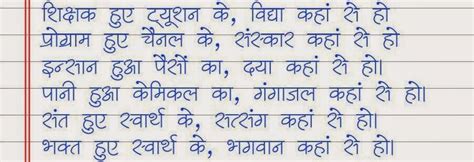 शिक्षक हुए ट्यूशन के, विद्या कहां से हो
प्रोग्राम हुए चैनल के, संस्कार कहां से हो
इन्सान हुआ पैसों का, दया कहां से हो।
पानी हुआ केमिकल का, गंगाजल कहां से हो।
संत हुए स्वार्थ के, सत्संग कहां से हो।
भक्त हुए स्वार्थ के, भगवान कहां से हो।